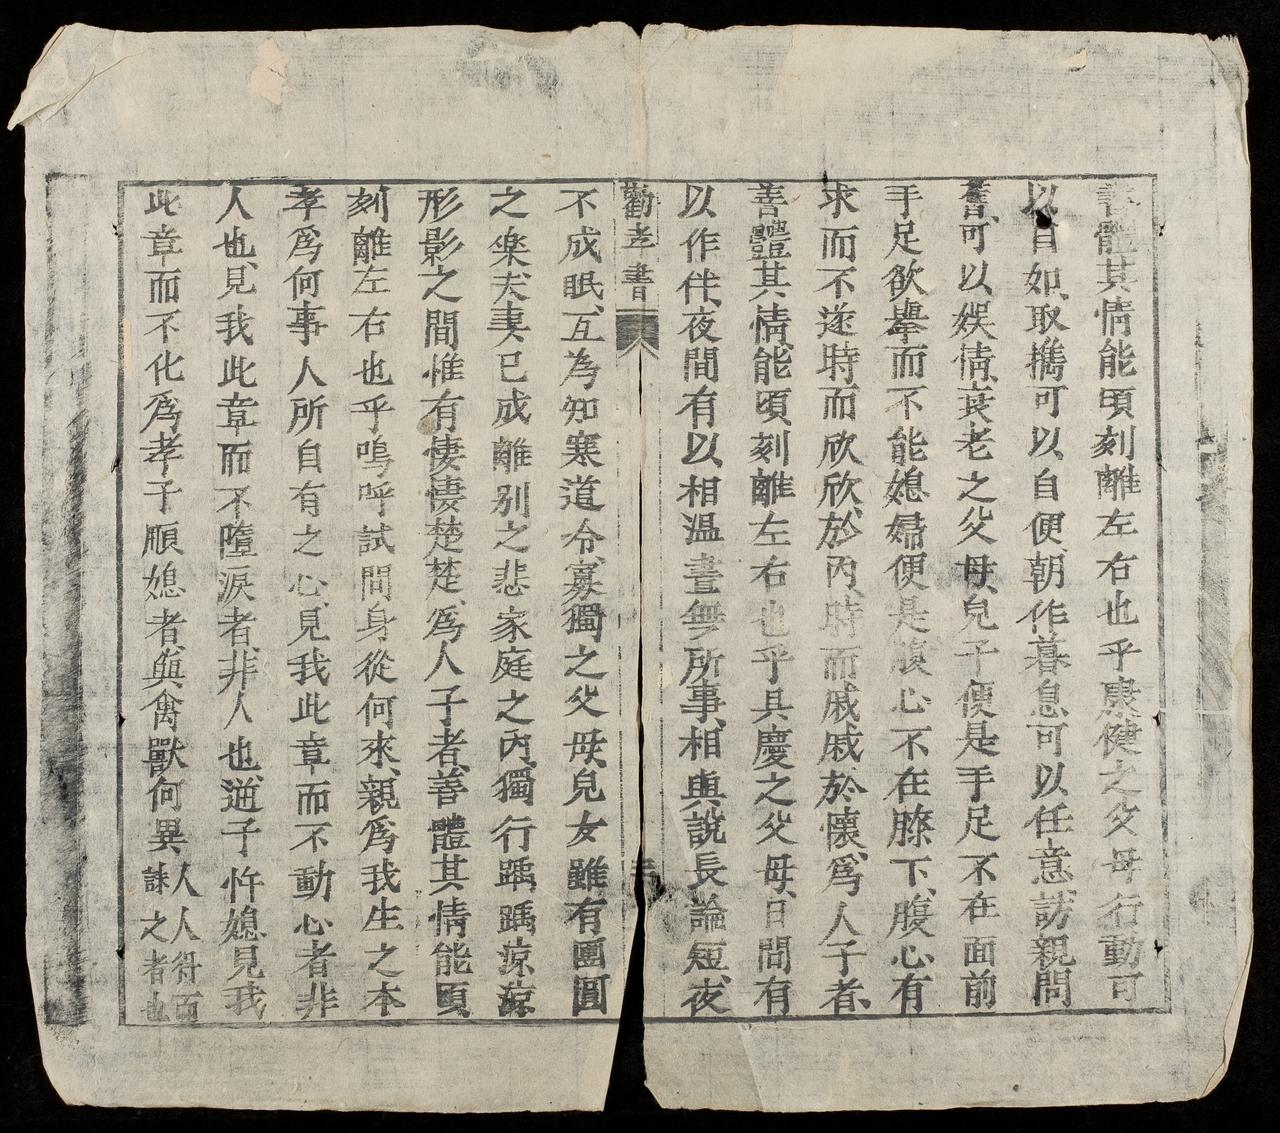 善體其情能頃刻離左右也乎康健之父母行動可
以自如、取携可以自便、朝作暮息可以任意、訪親問
舊、可以娛情、衰老之父母、兒子便是手足不在面前
手足欲舉而不能、媳婦便是腹心不在膝下、腹心有
求而不遂、時而欣欣於內、時而戚戚於懷、爲人子者、
善體其情、能頃刻離左右也乎、具慶之父母、日間有
以作伴、夜間有以相溫、晝無所事、相與說長論短、夜
勸孝書
不成眠、互為知寒道令、寡獨之父母、兒女雖有團圓
之楽、夫妻已成離別之悲、家庭之內、獨行踽踽涼涼
形影之間、惟有悽悽楚楚、爲人子者、善體其情能頃
刻離左右也乎、嗚呼試問身從何來、親爲我生之本
孝爲何事人所自有之心、見我此章而不動心者非
人也、見我此章而不墮淚者、非人也、逆子忤媳、見我
此章而不化爲孝子順媳者、與禽獸何異 人人得而
誅之者也